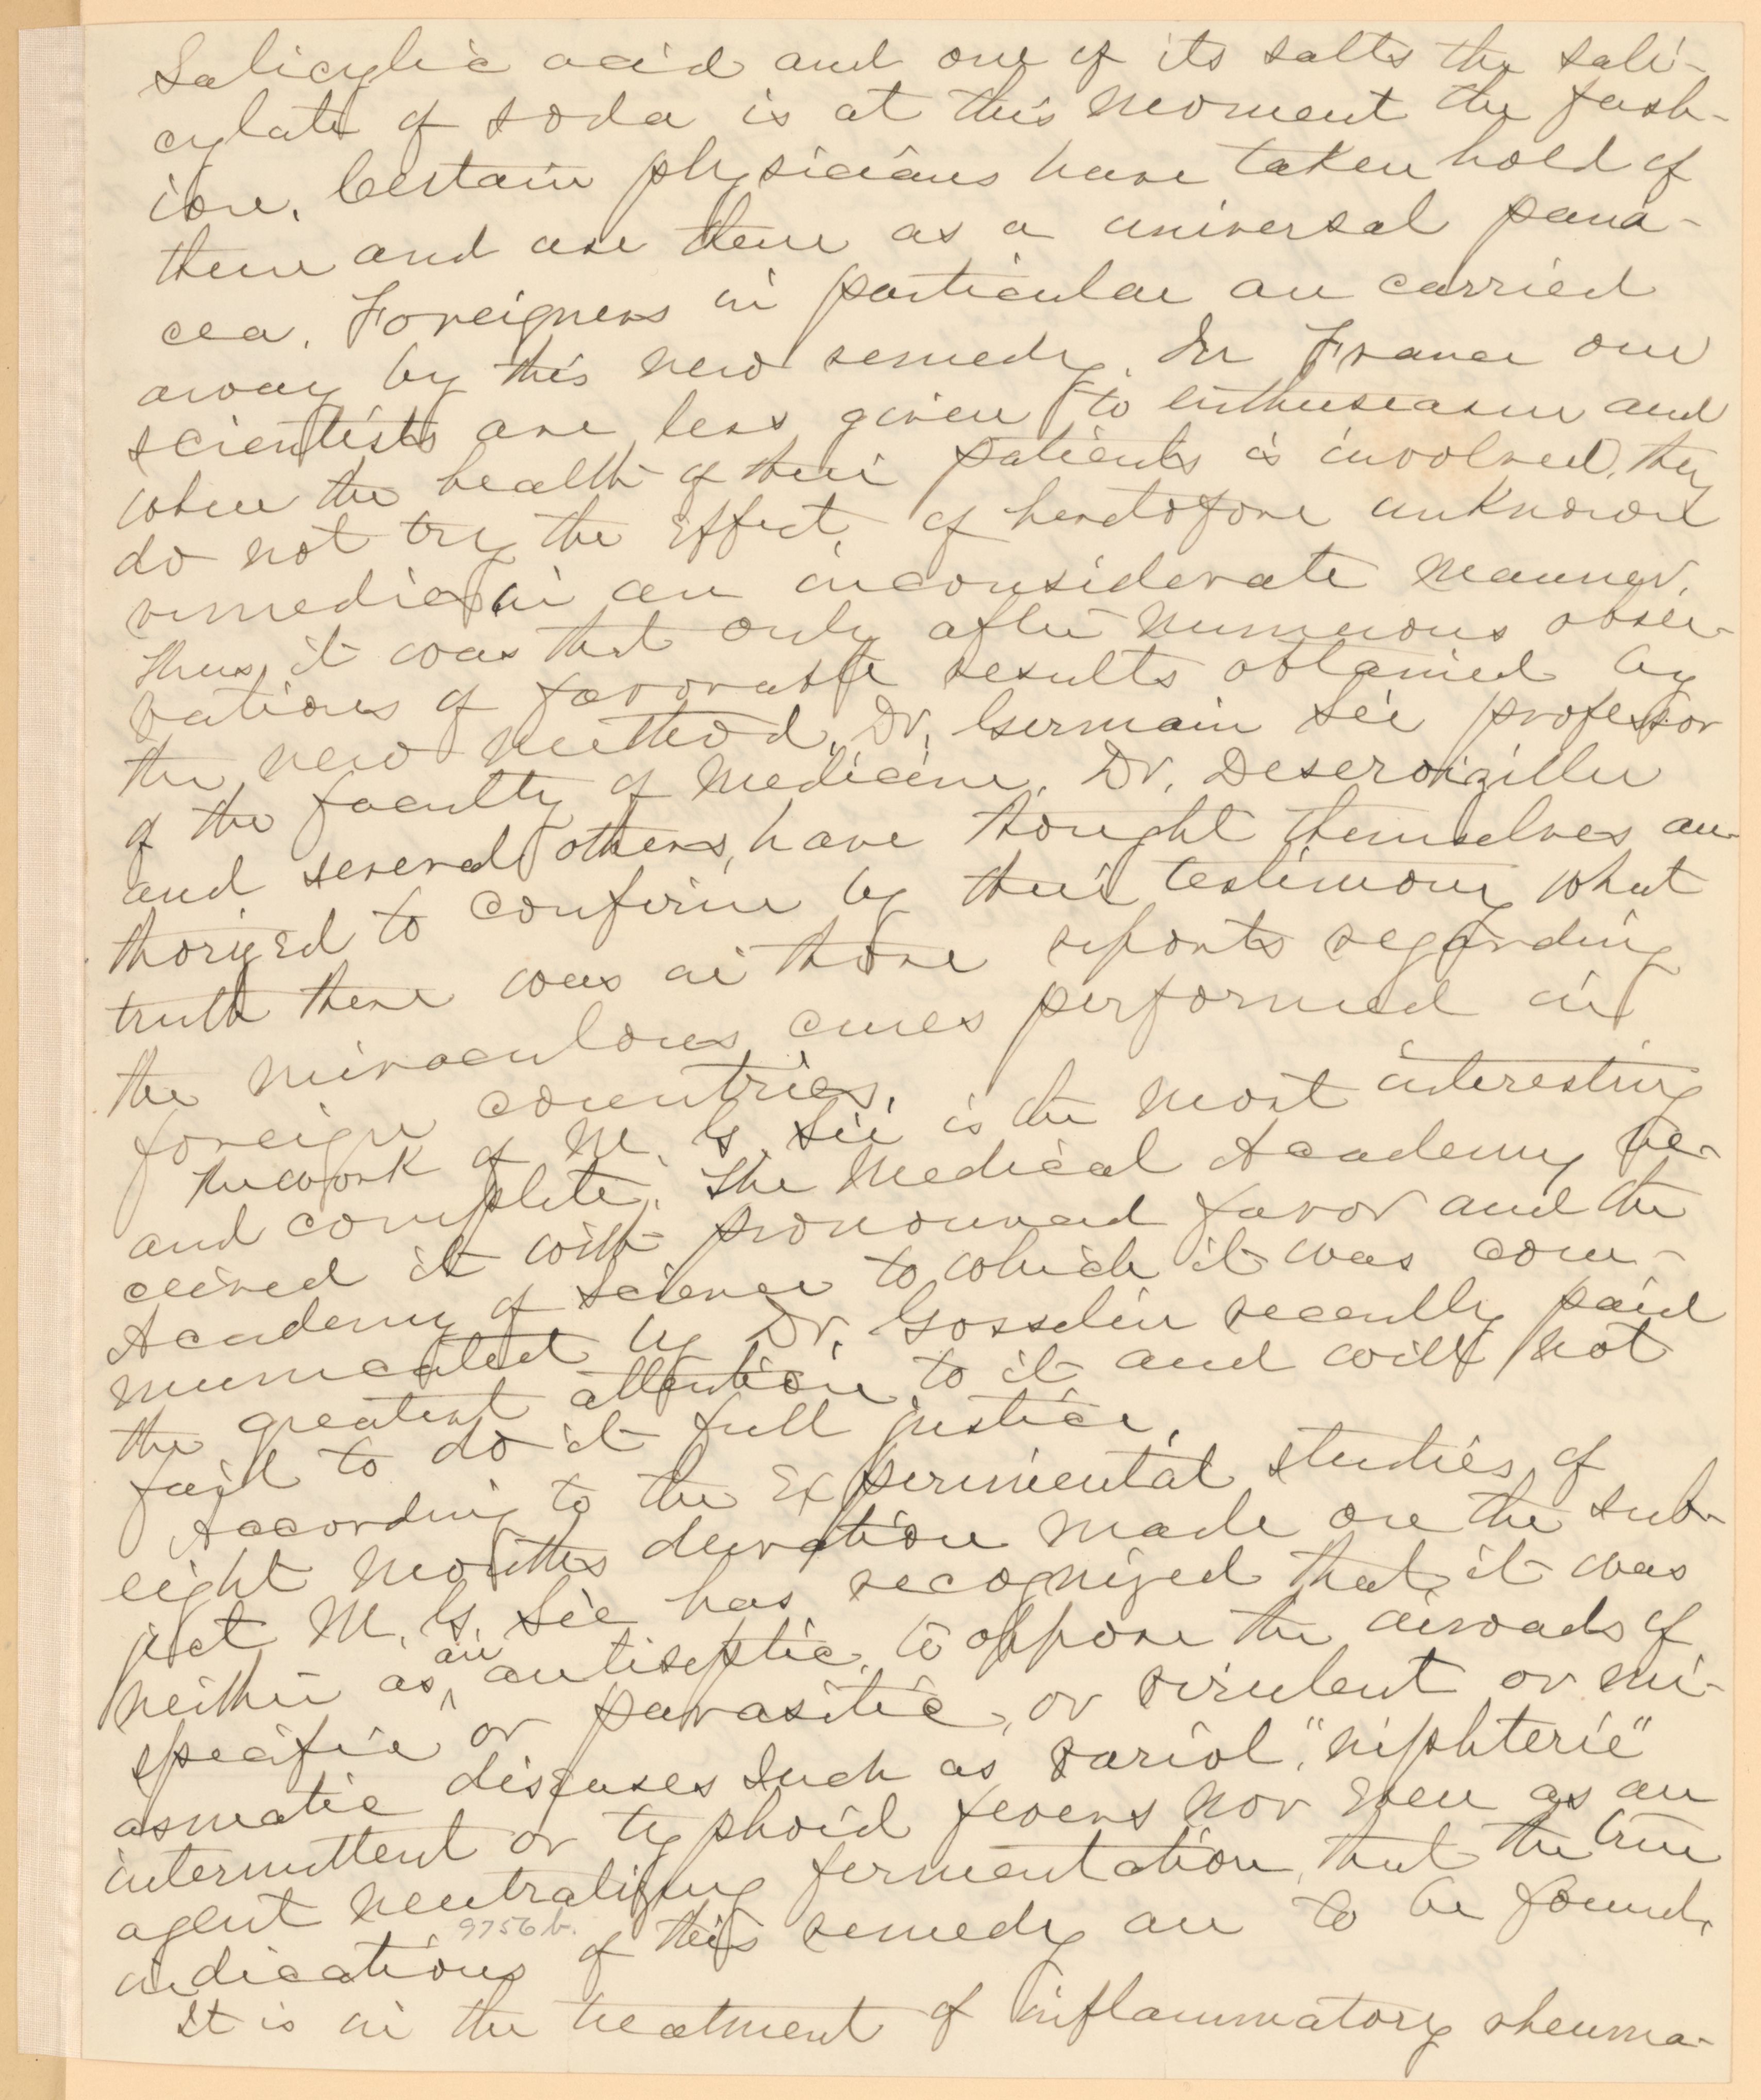 Salicylic acid and one of its salts the sali-
cylate of soda is at this moment the fash-
ion. Certain physicians have taken hold of
them and use them as a universal pana-
cea. Foreigners in particular are carried
away by this new remedy. In France our
scientists are less given to enthuseasm and
when the health of their patients is involved, they
do not try the Effect, of heretofore unknown
remedies in an inconsiderate manner.
Thus, it was that only after numerous obser-
vations of favorable results obtained by
the new method, Dr. Germain Sée professor
of the faculty of Medicine, Dr. Descroizilles
and several others, have thought themselves au-
thorized to confirm by their testimony what
truth there was in those reports regarding
the miraculous cures performed in
foreign countries.
The work of M. G. Sée is the most interesting
and complete. The Medical Academy re-
ceived it with pronounced favor and the
Academy of Science to which it was com-
municated by Dr. Gosselin recently paid
the greatest attention to it and will not
fail to do it full justice.
According to the Experimental studies of
eight months duration made on the sub-
ject M. G. Sée has recognized that it was
neither as an antiseptic, to oppose the inroads of
specific or parasitic, or virulent or mi-
asmatic diseases such as variol, "niphterie"
intermittent or typhoid fevers nor Even as an
agent neutralizing fermentation, that the true
indications of this remedy are to be found.
9756 b.
It is in the treatment of inflammatory rheuma-